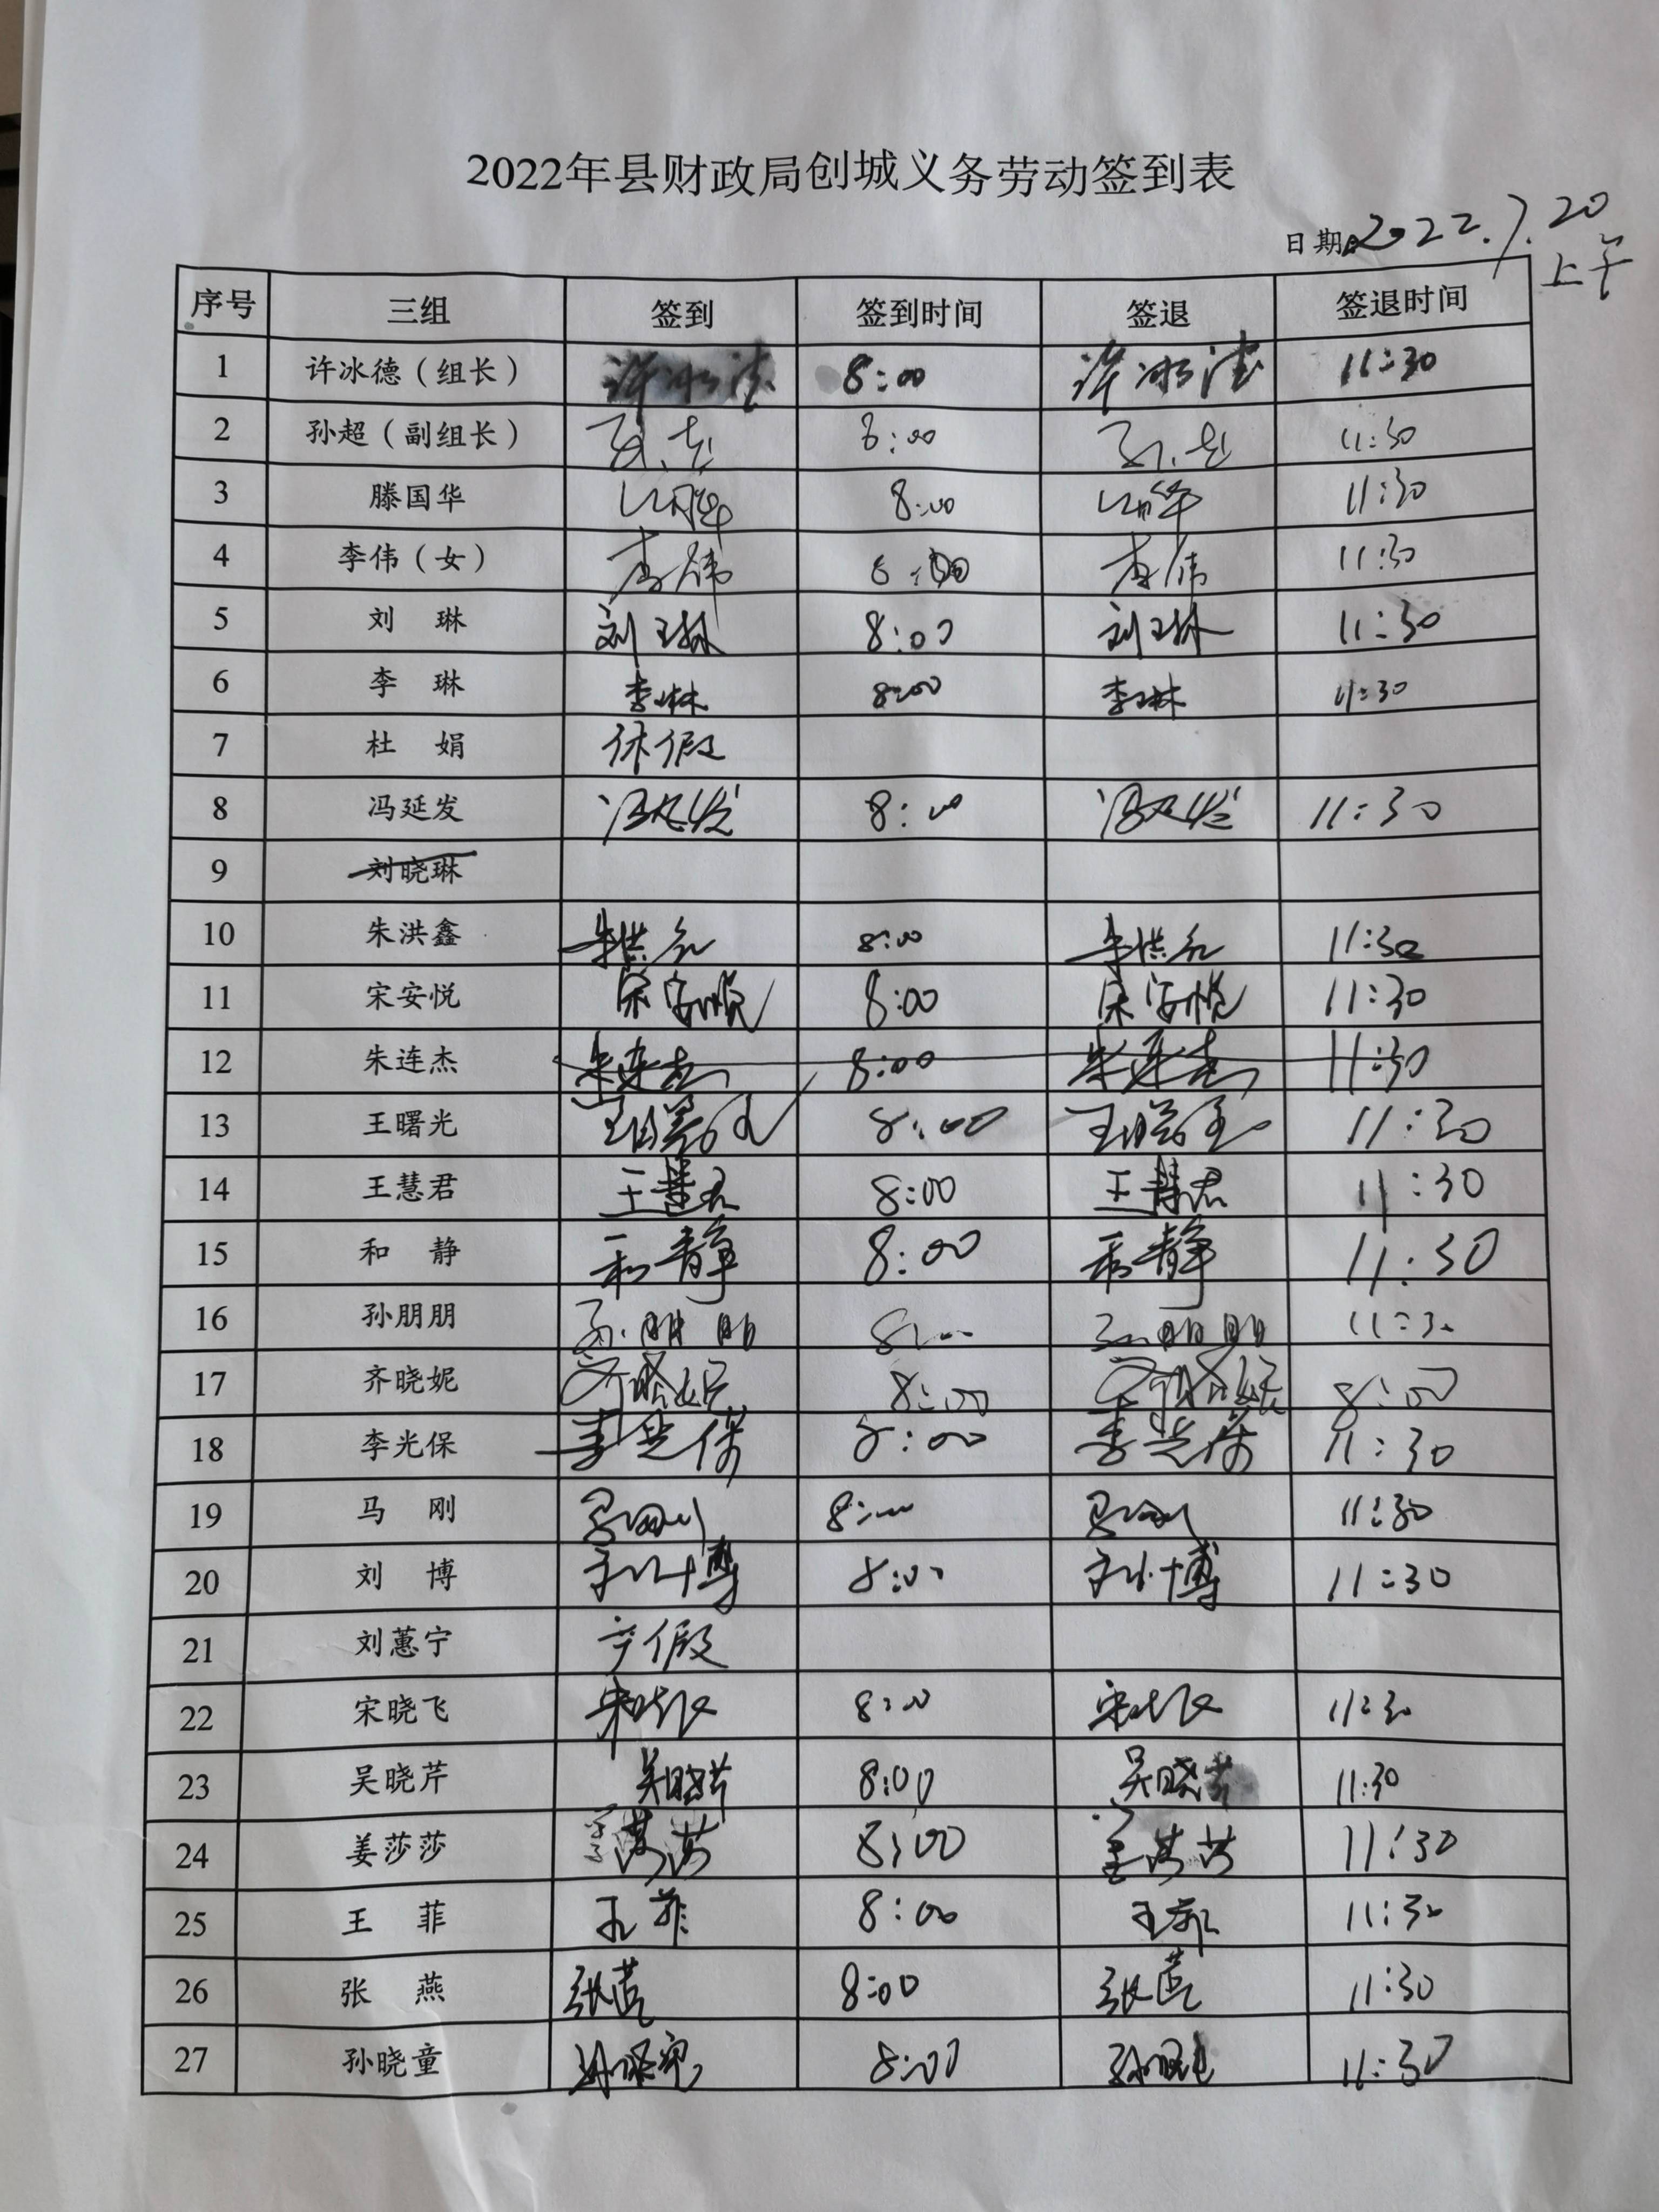 2022年县财政局创城义务劳动签到表
日期:2022.7.20
上午
序号 三组 签到 签到时间 签退 签退时间
1 许冰德（组长） 许冰德 8:00 许冰德 11:30
2 孙超（副组长） 孙超 8:00 孙超 11:30
3 滕国华 8:00 11:30
4 李伟（女） 李伟 8:00 李伟 11:30
5 刘 琳 刘琳 8:00 刘琳 11:30
6 李 琳 李琳 8:00 李琳 11:30
7 杜 娟 休假
8 冯延发 冯延发 8:00 冯延发 11:30
9 刘晓琳
10 朱洪鑫 朱洪鑫 8:00 朱洪鑫 11:30
11 宋安悦 宋安悦 8:00 宋安悦 11:30
12 朱连杰 朱连杰 8:00 朱连杰 11:30
13 王曙光 王曙光 8:00 王曙光 11:30
14 王慧君 王慧君 8:00 王慧君 11:30
15 和 静 和静 8:00 和静 11:30
16 孙朋朋 孙朋朋 8:00 孙朋朋 11:30
17 齐晓妮 齐晓妮 8:00 齐晓妮 8:00
18 李光保 李光保 8:00 李光保 11:30
19 马 刚 马刚 8:00 马刚 11:30
20 刘 博 刘博 8:00 刘博 11:30
21 刘蕙宁 产假
22 宋晓飞 宋晓飞 8:00 宋晓飞 11:30
23 吴晓芹 吴晓芹 8:00 吴晓芹 11:30
24 姜莎莎 姜莎莎 8:00 姜莎莎 11:30
25 王 菲 王菲 8:00 王菲 11:30
26 张 燕 张燕 8:00 张燕 11:30
27 孙晓童 孙晓童 8:00 孙晓童 11:30